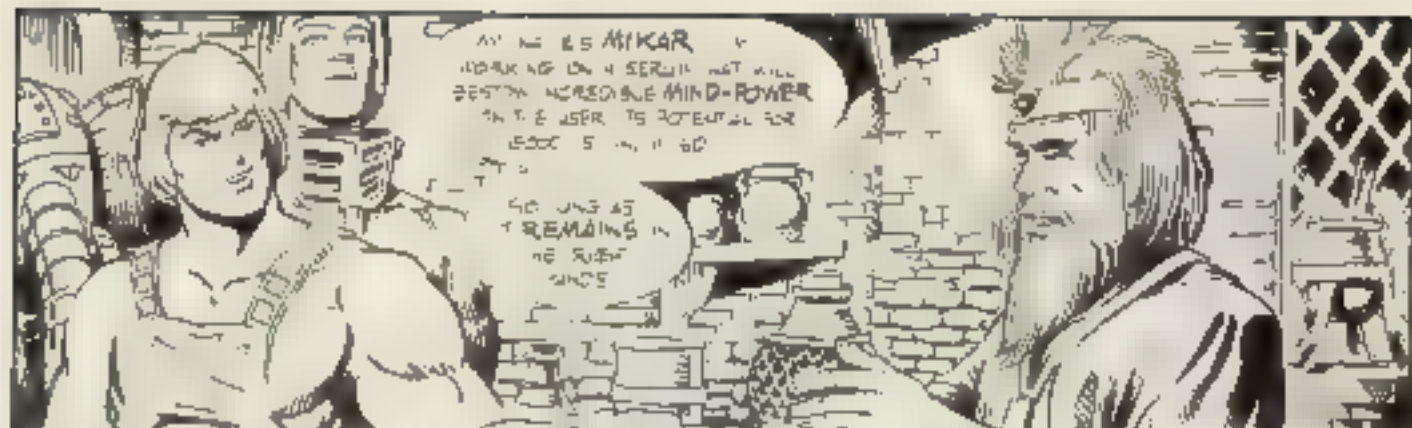 MY NAME IS MIKAR
WORKING ON A SERUM THAT WILL
BESTOW INCREDIBLE MIND-POWER
ON THE USER. ITS POTENTIAL FOR
GOOD IS UNLIMITED
SO LONG AS
IT REMAINS IN
THE RIGHT
HANDS